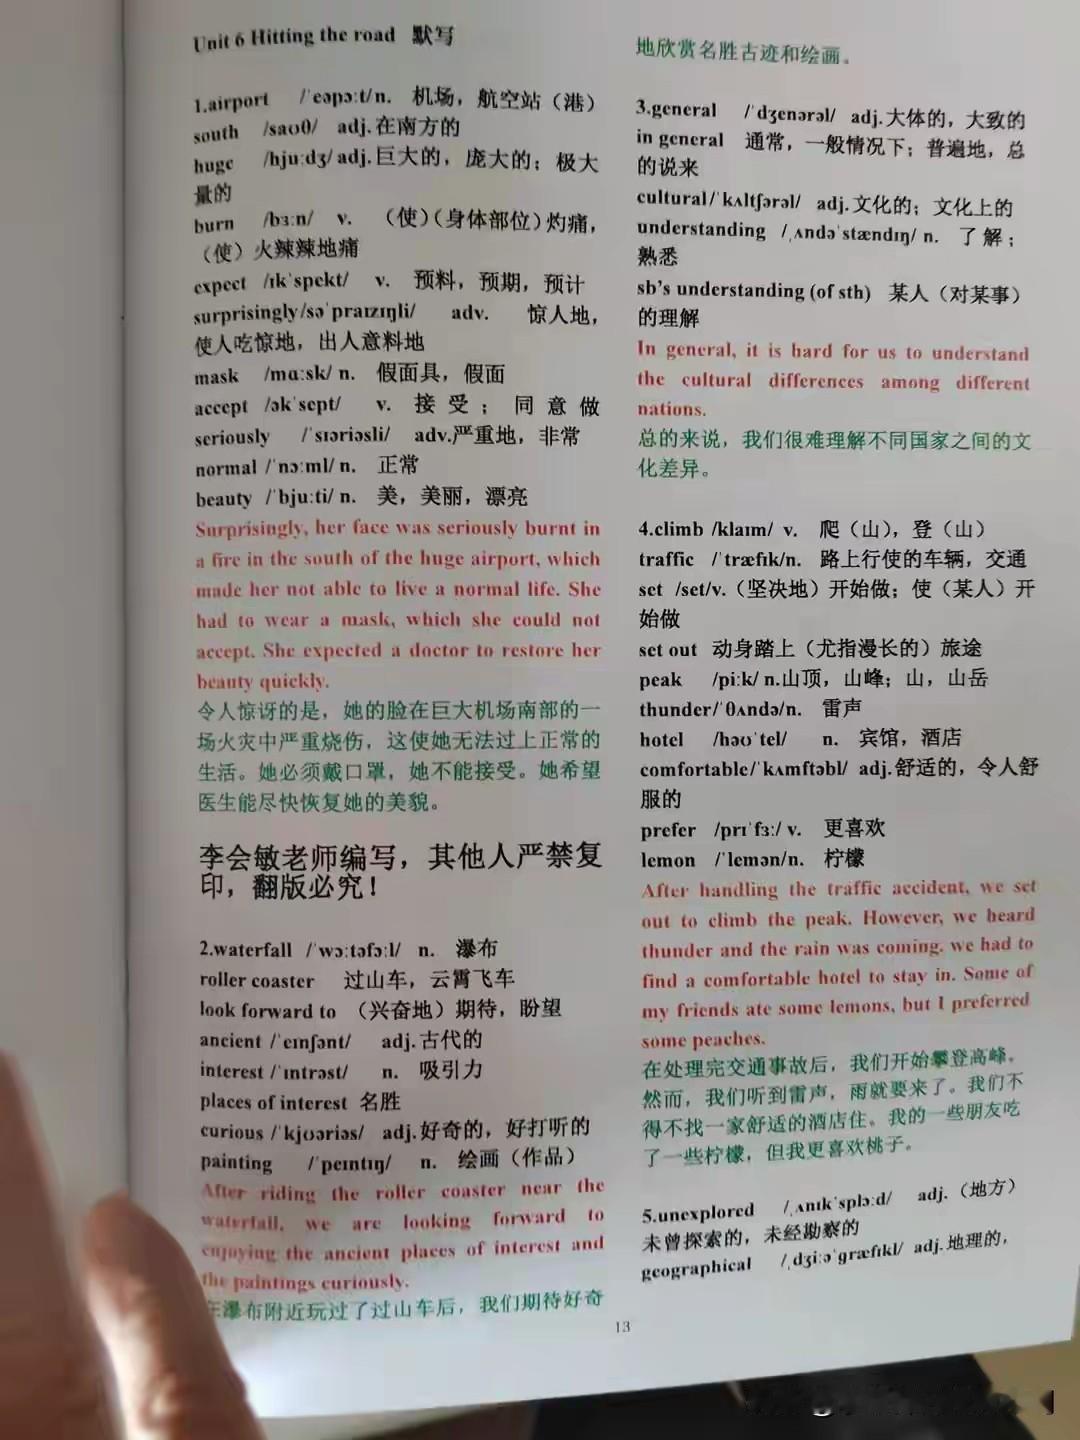 Unit 6 Hitting the road 默写
1.airport /ˈeəpɔːt/n. 机场，航空站（港）
south /saʊθ/ adj.在南方的
huge /hjuːdʒ/ adj.巨大的，庞大的；极大
量的
burn /bɜːn/ v. （使）（身体部位）灼痛，
（使）火辣辣地痛
expect /ɪkˈspekt/ v. 预料，预期，预计
surprisingly/səˈpraɪzɪŋli/ adv. 惊人地，
使人吃惊地，出人意料地
mask /mɑːsk/ n. 假面具，假面
accept /əkˈsept/ v. 接受；同意做
seriously /ˈsɪəriəsli/ adv.严重地，非常
normal /ˈnɔːml/ n. 正常
beauty /ˈbjuːti/ n. 美，美丽，漂亮
Surprisingly, her face was seriously burnt in
a fire in the south of the huge airport, which
made her not able to live a normal life. She
had to wear a mask, which she could not
accept. She expected a doctor to restore her
beauty quickly.
令人惊讶的是，她的脸在巨大机场南部的一
场火灾中严重烧伤，这使她无法过上正常的
生活。她必须戴口罩，她不能接受。她希望
医生能尽快恢复她的美貌。
李会敏老师编写，其他人严禁复
印，翻版必究！
2.waterfall /ˈwɔːtəfɔːl/ n. 瀑布
roller coaster 过山车，云霄飞车
look forward to （兴奋地）期待，盼望
ancient /ˈeɪnʃənt/ adj.古代的
interest /ˈɪntrəst/ n. 吸引力
places of interest 名胜
curious /ˈkjʊəriəs/ adj.好奇的，好打听的
painting /ˈpeɪntɪŋ/ n. 绘画（作品）
After riding the roller coaster near the
waterfall, we are looking forward to
enjoying the ancient places of interest and
the paintings curiously.
在瀑布附近玩过了过山车后，我们期待好奇
地欣赏名胜古迹和绘画。
3.general /ˈdʒenərəl/ adj.大体的，大致的
in general 通常，一般情况下；普遍地，总
的说来
cultural/ˈkʌltʃərəl/ adj.文化的；文化上的
understanding /ˌʌndəˈstændɪŋ/ n. 了解；
熟悉
sb's understanding (of sth) 某人（对某事）
的理解
In general, it is hard for us to understand
the cultural differences among different
nations.
总的来说，我们很难理解不同国家之间的文
化差异。
4.climb /klaɪm/ v. 爬（山），登（山）
traffic /ˈtræfɪk/n. 路上行使的车辆，交通
set /set/v.（坚决地）开始做；使（某人）开
始做
set out 动身踏上（尤指漫长的）旅途
peak /piːk/ n.山顶，山峰；山，山岳
thunder/ˈθʌndə/n. 雷声
hotel /həʊˈtel/ n. 宾馆，酒店
comfortable/ˈkʌmftəbl/ adj.舒适的，令人舒
服的
prefer /prɪˈfɜː/ v. 更喜欢
lemon /ˈlemən/n. 柠檬
After handling the traffic accident, we set
out to climb the peak. However, we heard
thunder and the rain was coming. we had to
find a comfortable hotel to stay in. Some of
my friends ate some lemons, but I preferred
some peaches.
在处理完交通事故后，我们开始攀登高峰。
然而，我们听到雷声，雨就要来了。我们不
得不找一家舒适的酒店住。我的一些朋友吃
了一些柠檬，但我更喜欢桃子。
5.unexplored /ˌʌnɪkˈsplɔːd/ adj.（地方）
未曾探索的，未经勘察的
geographical /ˌdʒiːəˈɡræfɪkl/ adj.地理的，
13